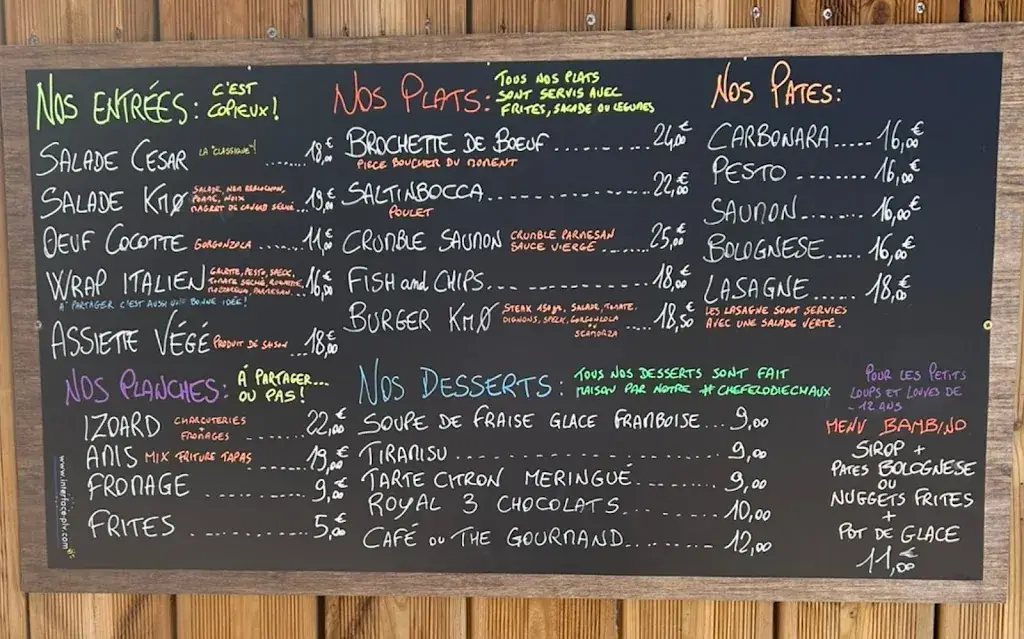 NOS ENTRÉES: C'EST COPIEUX!
SALADE CESAR LA "CLASSIQUE"! ...... 18,00€
SALADE KMØ SALADE, NEM REBLOCHON,
POMME, NOIX
MAGRET DE CANARD SÉCHÉ... 19,00€
OEUF COCOTTE GORGONZOLA ...... 11,00€
WRAP ITALIEN GALETTE, PESTO, SPECK,
TOMATE SÉCHÉ, ROQUETTE,
MOZZARELLA, PARMESAN... 16,50€
A PARTAGER C'EST AUSSI UNE BONNE IDÉE!
ASSIETTE VÉGÉ PRODUIT DE SAISON ... 18,00€
NOS PLATS: TOUS NOS PLATS
SONT SERVIS AVEC
FRITES, SALADE OU LEGUMES
BROCHETTE DE BOEUF ........... 24,00€
PIECE BOUCHER DU MOMENT
SALTINBOCCA ............ 22,00€
POULET
CRUMBLE SAUMON CRUMBLE PARMESAN
SAUCE VIERGE ...... 25,00€
FISH and CHIPS ............ 18,00€
BURGER KMØ STEAK 150gr, SALADE, TOMATE,
OIGNONS, SPECK, GORGONZOLA ... 18,50€
OU
SCAMORZA
NOS PATES:
CARBONARA ..... 16,00€
PESTO ........ 16,00€
SAUMON ........ 16,00€
BOLOGNESE ..... 16,00€
LASAGNE ....... 18,00€
LES LASAGNE SONT SERVIES
AVEC UNE SALADE VERTE.
NOS PLANCHES: À PARTAGER...
OU PAS!
IZOARD CHARCUTERIES
+
FROMAGES ...... 22,00€
ANIS MIX FRITURE TAPAS ..... 19,00€
FROMAGE ............ 9,00€
FRITES ............ 5,00€
www.interface-plv.com
NOS DESSERTS: TOUS NOS DESSERTS SONT FAIT
MAISON PAR NOTRE #CHEFELODIECHAUX
SOUPE DE FRAISE GLACE FRAMBOISE ... 9,00
TIRAMISU .................... 9,00
TARTE CITRON MERINGUÉ ...... 9,00
ROYAL 3 CHOCOLATS ....... 10,00
CAFÉ OU THE GOURMAND ....... 12,00
POUR LES PETITS
LOUPS ET LOUVES DE
- 12 ANS
MENU BAMBINO
SIROP +
PATES BOLOGNESE
OU
NUGGETS FRITES
+
POT DE GLACE
11,00€